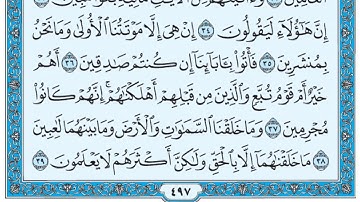 إِنَّ هَٰٓؤُلَآءِ لَيَقُولُونَ ٣٤ إِنْ هِىَ إِلَّا مَوْتَتُنَا ٱلْأُولَىٰ وَمَا نَحْنُ
بِمُنشَرِينَ ٣٥ فَأْتُوا۟ بِـَٔابَآئِنَآ إِن كُنتُمْ صَـٰدِقِينَ ٣٦ أَهُمْ
خَيْرٌ أَمْ قَوْمُ تُبَّعٍ وَٱلَّذِينَ مِن قَبْلِهِمْ أَهْلَكْنَـٰهُمْ إِنَّهُمْ كَانُوا۟
مُجْرِمِينَ ٣٧ وَمَا خَلَقْنَا ٱلسَّمَـٰوَٰتِ وَٱلْأَرْضَ وَمَا بَيْنَهُمَا لَـٰعِبِينَ
٣٨ مَا خَلَقْنَـٰهُمَآ إِلَّا بِٱلْحَقِّ وَلَـٰكِنَّ أَكْثَرَهُمْ لَا يَعْلَمُونَ ٣٩
٤٩٧